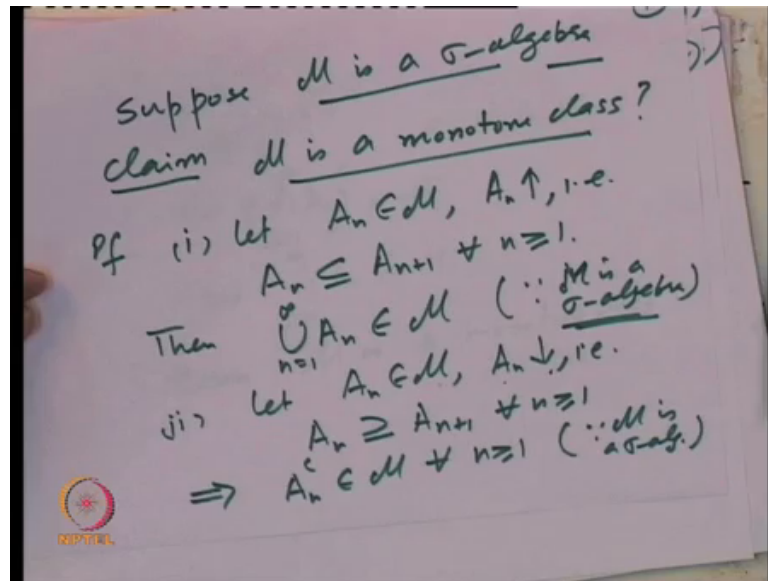 Suppose M is a σ-algebra
Claim M is a monotone class?
Pf (i) Let Aₙ ∈ M, Aₙ ↑, i.e.
Aₙ ⊆ Aₙ₊₁ ∀ n ≥ 1.
Then ⋃ₙ₌₁^∞ Aₙ ∈ M (∵ M is a σ-algebra)
ii) Let Aₙ ∈ M, Aₙ ↓, i.e.
Aₙ ⊇ Aₙ₊₁ ∀ n ≥ 1
⇒ Aₙᶜ ∈ M ∀ n ≥ 1 (∵ M is a σ-alg.)
NPTEL